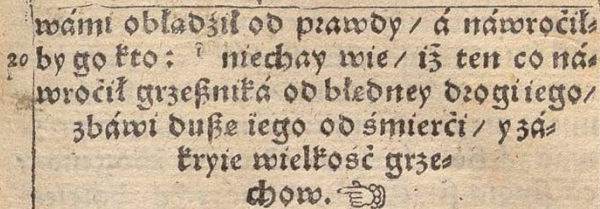 wámi obłądźił od prawdy / á náwroćił-
20 by go kto: niechay wie / iż ten co ná-
wroćił grzeßniká od błędney drogi iego /
zbáwi dußę iego od śmierći / y zá-
kryie wielkość grze-
chow. ☜